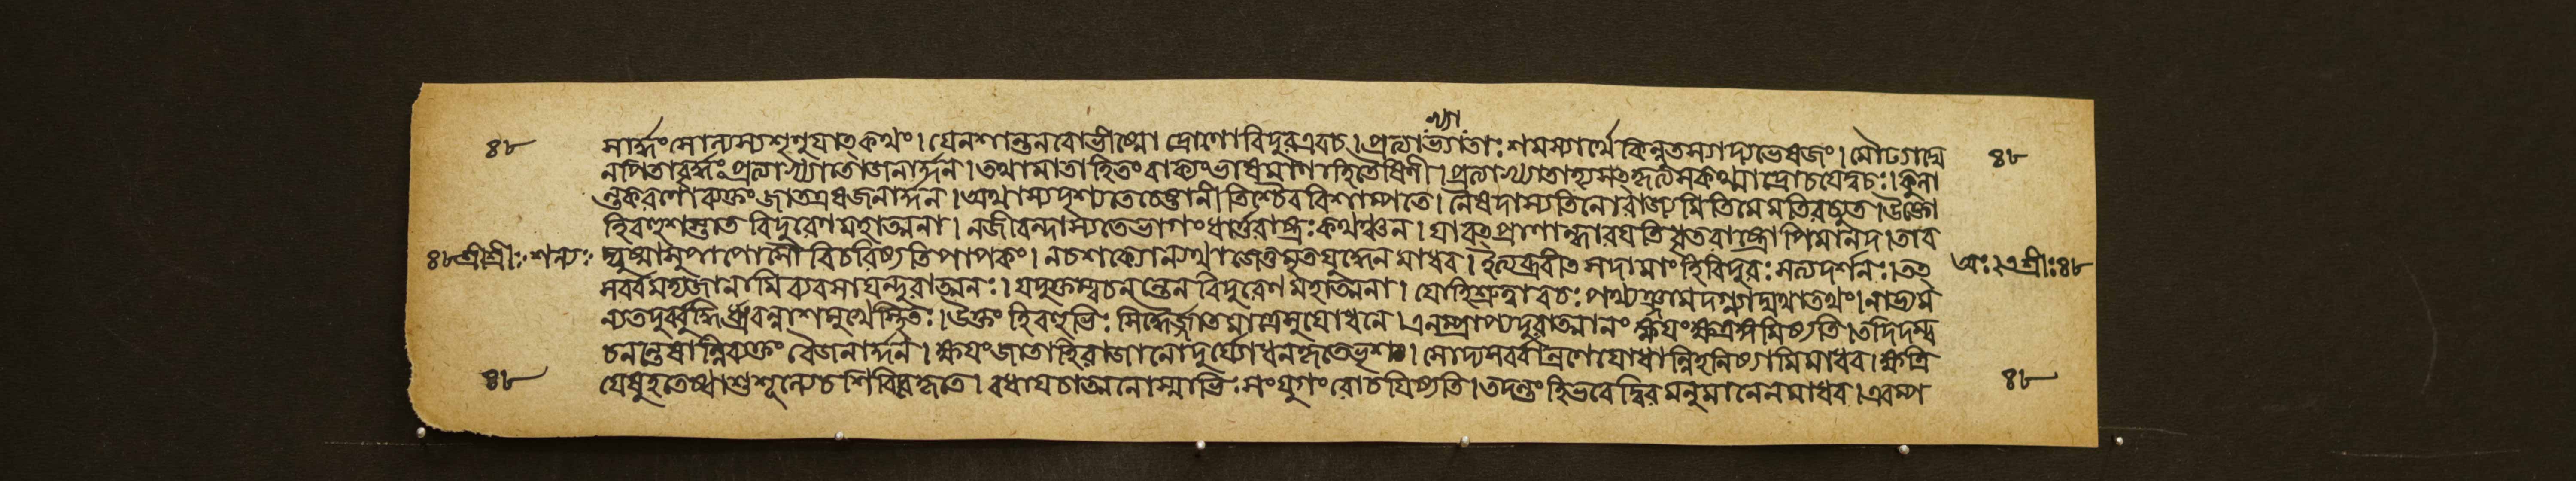 ন্থ্যা
৪৮ সার্হ্দ্ধং সোন্যস্য শৃণুযাত কথং। যেন শান্তনবো ভীষ্মো দ্রোণো বিদুর এবচ। প্রত্যাভ্যাতাঃ শমস্যার্থে কিন্নু তস্যাদ্য ভেষজং। মৌঢ্যাদ্যে ৪৮
ন পিতা বৃদ্ধঃ প্রত্যাখ্যাতো জনার্দ্দন। তথা মাতা হিতং বাক্যং ভাষমাণা হিতৈষিণী। প্রত্যাখ্যাতা হ্যসৎকৃত্য স কস্মাদ্রোচযেদ্বচঃ। কুলা
ন্তকরণো ব্যক্তং জাত এষ জনার্দ্দন। অথাস্য দৃশ্যতে চেষ্টা নীতিশ্চৈব বিশাম্পতে। নৈষ দাস্যতি নো রাজ্যমিতি মে মতিরচ্যুত। উক্তো
হি বহুশস্তাত বিদুরেণ মহাত্মনা। ন জীবন্দাস্যতে ভাগং ধার্ত্তরাষ্ট্রঃ কথঞ্চন। যাবৎ প্রাণা ন্ধারযতি ধৃতরাষ্ট্রোপি মানদ। তাব
৪৮ শ্রীশ্রীঃ শল্যঃ দ্যুষ্মাসুপাপোসৌ বিচরিষ্যতি পাপকং। ন চ শক্যোন্যথা জেতুমৃতে যুদ্ধেন মাধব। ইত্যব্রবীত সদা মাং হি বিদুরঃ সত্যদর্শনঃ। তৎ অঃ। এ শ্রীঃ ৪৮
সর্ব্বমহ্যজানামি ব্যবসাযন্দুরাত্মনঃ। যদুক্তম্বচনন্তেন বিদুরেণ মহাত্মনা। যো হি শ্রুত্বা বচঃ পথ্যঞ্জামদগ্ন্যাদ্যথাতথং। নাভ্যম
ন্যত দুর্ব্বুদ্ধির্ধ্রুবন্নাশমুখে স্থিতঃ। উক্তং হি বহুভিঃ সিদ্ধৈর্জ্জাতমাত্রে সুযোধনে। এনম্প্রাপ্য দুরাত্মানং ক্ষযং ক্ষত্রঙ্গমিষ্যতি। তদিদম্ব
চনন্তেষান্নিরুক্তং বৈ জনার্দ্দন। ক্ষযং জাতা হি রাজানো দুর্য্যোধনকৃতে ভৃশং। সোদ্য সর্ব্বান্রণে যোধান্নিহনিষ্যামি মাধব। ক্ষত্রি
৪৮ যেষু হতেষ্বাশু শূন্যে চ শিবিরে কৃতে। বধায চাত্মনোস্মাভিঃ সংযুগং রোচযিষ্যতি। তদন্তং হি ভবেদ্বৈরমনুমানেন মাধব। এবম্প ৪৮